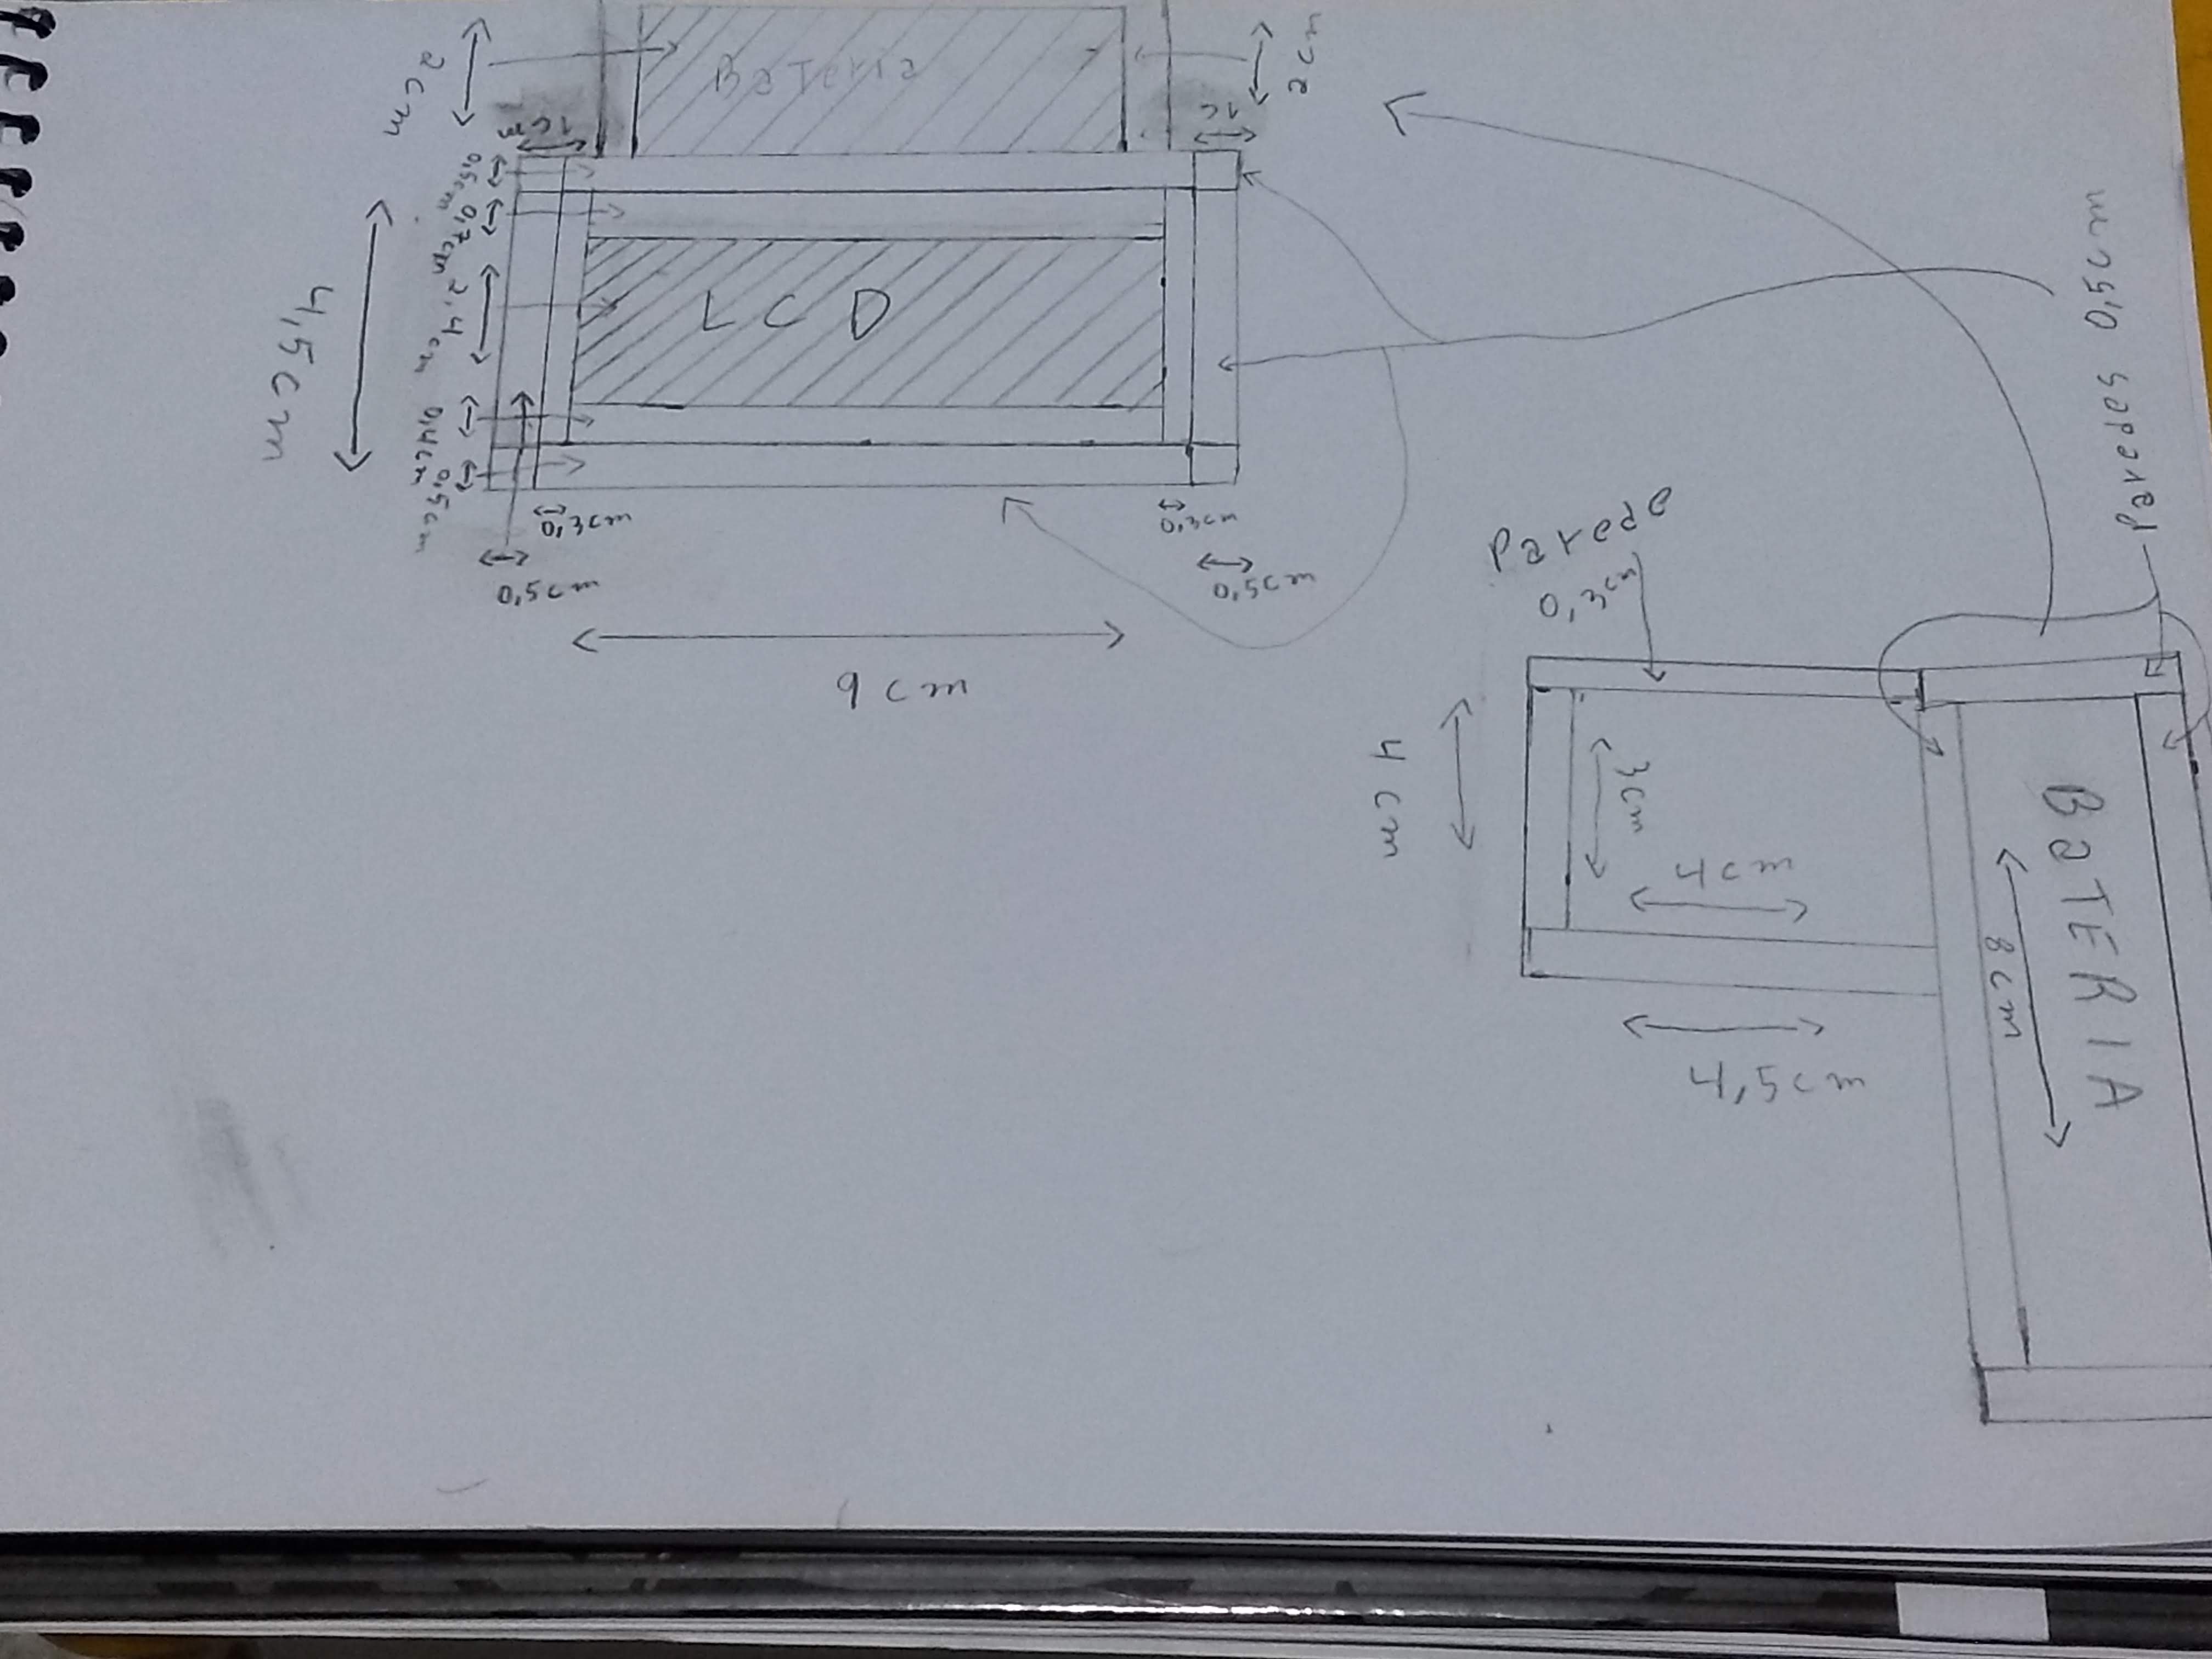 Bateria
2cm
2cm
1cm
1c
0,5cm
0,7cm
2,4cm
0,4cm
0,5cm
4,5cm
LCD
0,3cm
0,3cm
0,5cm
0,5cm
9cm
Paredes 0,5cm
Parede
0,3cm
4cm
3cm
4cm
4,5cm
BaTERIA
8cm